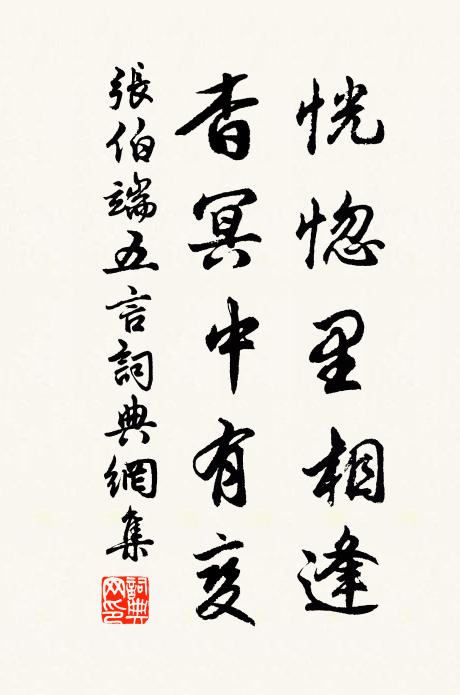 恍惚里相逢
杳冥中有变
張伯端五言詞典網集
詞典網印